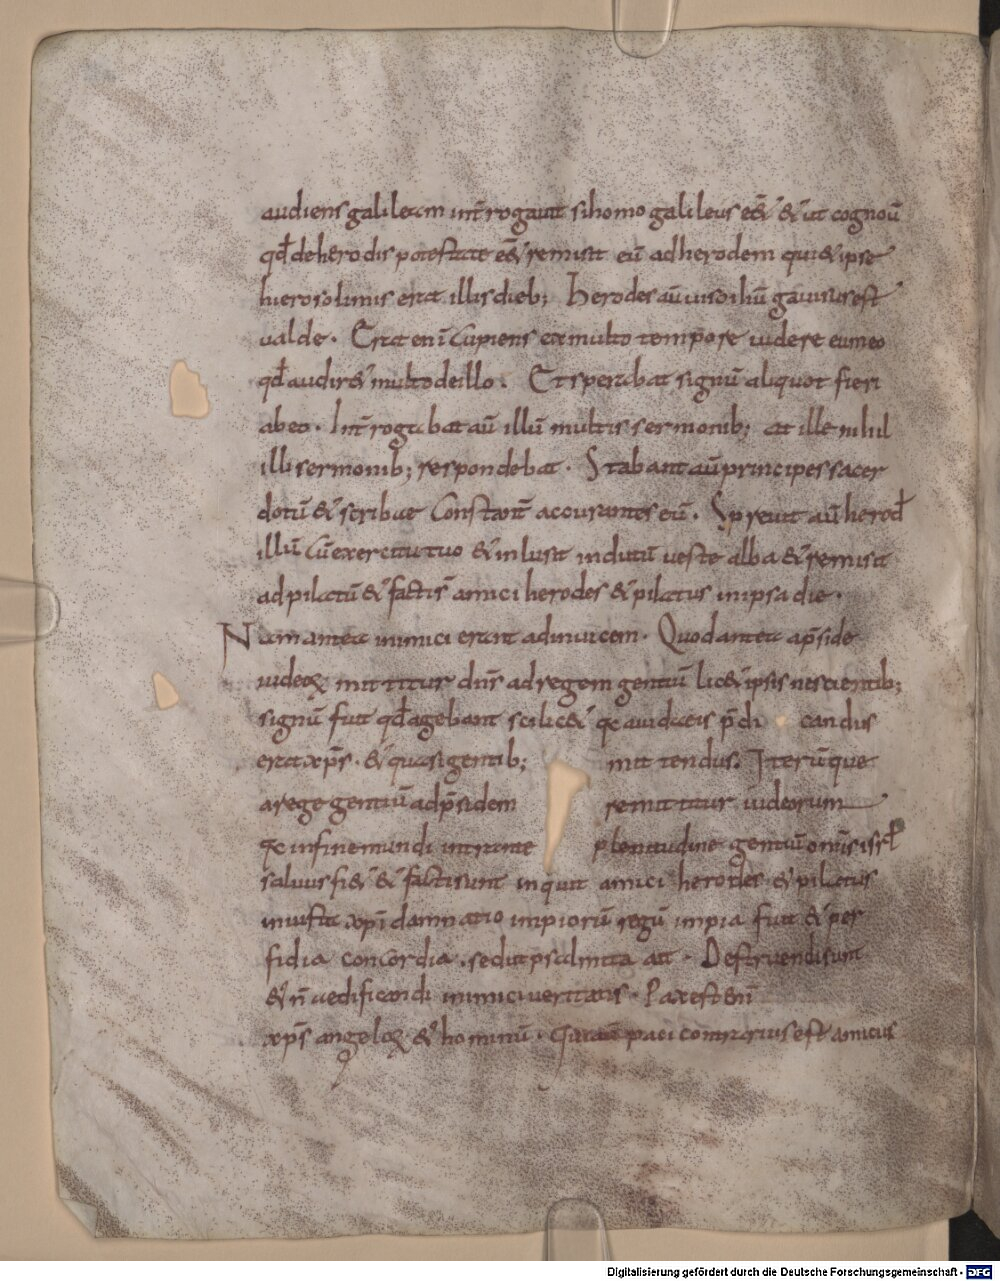 audiens galileam int̄rogauit si homo galileus eēt & ut cognoū
qd̄ de herodis potestate eēt remisit eū ad herodem qui & ipse
hierosolimis erat illis dieb; Herodes aū uiso ih̄u gauisus est
ualde. Erat enī cupiens ex multo tempore uidere eum eo
qd̄ audir& multo de illo. Et sperabat signū aliquot fieri
ab eo. Int̄rogabat aū illū multis sermonib; at ille nihil
illi sermonib; respondebat. Stabant aū principes sacer
dotū & scribae constant̄ accusantes eū. Spreuit aū herod̄
illū cū exercitu tuo & inlusit indutū ueste alba & remisit
ad pilatū & facti s̄ amici herodes & pilatus in ipsa die.
Nam antea inimici erant ad inuicem. Quod antea ap̄side
iudeoꝝ mittitur dn̄s ad regem gentiū lic& ipsis nescientib;
signū fuit qd̄ agebant scilic& qa a iudaeis p̄di candus
erat xp̄s. & quasi gentib; mittendus. Iterūque
a rege gentiū ad p̄sidem remittitur iudeorum
qa in fine mundi intrante plenitudine gentiū omīs isrl̄
saluus fi& & facti sunt inquit amici herodes & pilatus
iniusta xp̄i damnatio impiorū regū impia fuit & per
fidia concordia. sed ut psalmista ait. Destruendi sunt
& n̄ aedificandi inimici ueritatis. Pax est en̄
xp̄s angeloꝝ & hominū. paci contrarius est amicus
Digitalisierung gefördert durch die Deutsche Forschungsgemeinschaft - DFG